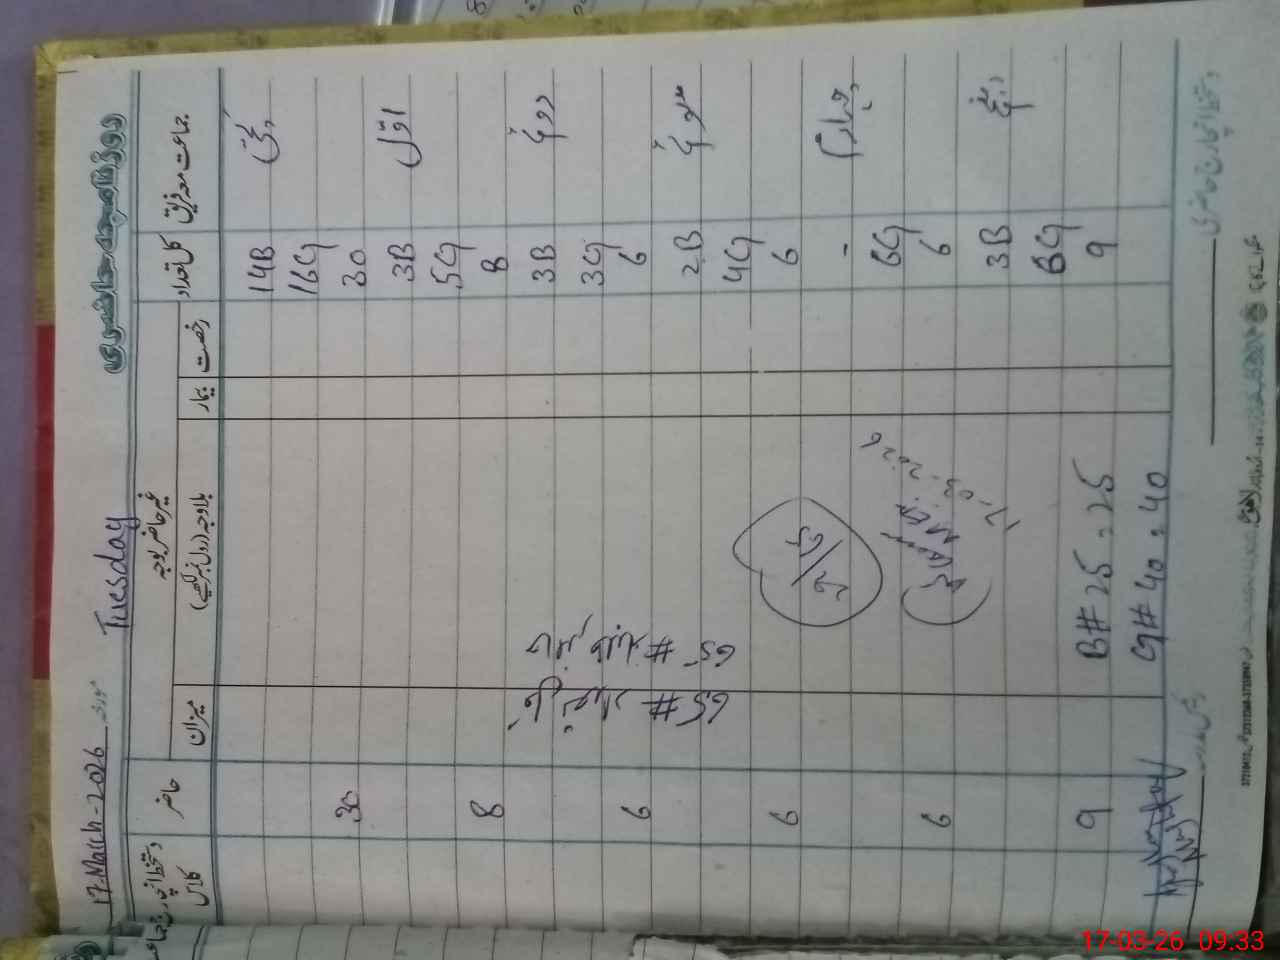 روزنامچہ حاضری
17-March-2026 Tuesday
جماعت معہ فریق کل تعداد غیر حاضر بوجہ حاضر دستخط انچارج جماعت کلاس
رخصت بیمار بلاوجہ (رول نمبر لکھیے) میزان
کچی 14B
16G
30 30
اول 3B
5G
8 8
دوئم 3B
3G
6 6
سوئم 2B
4G
6 6
چہارم -
6G
6 6
پنجم 3B
6G
9 9
65 #
65 #
17.03.2026
B# 25 = 25
G# 40 = 40
دستخط انچارج حاضری
17-03-26 09:33